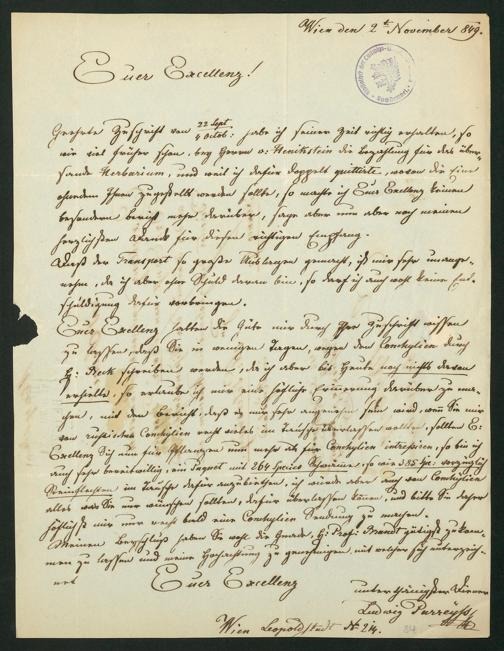 Wien den 2t November 849.
Euer Excellenz!
Geehrte Zuschrift vom 22 Sept / 4 Octob: habe ich seiner Zeit richtig erhalten, so
wie viel früher schon, bey Herrn v: Henikstein die Bezahlung für das über-
sande Herbarium, und weil ich dafür doppelt quittirte, wovon die Eine
Ihnen zugestellt werden sollte, so machte ich Eurer Exellenz keinen
besondern bericht mehr darüber, sage aber nun aber noch meinen
herzlichsten Dank für diesen richtigen Empfang.
Daß der Transport so große Auslagen gemacht, ist mir sehr unange-
nehm, da ich aber ohne Schuld daran bin, so darf ich auch wohl keine Ent-
schuldigung dafür vorbringen.
Euer Exellenz hatten die Güte mir durch Ihre Zuschrift wissen
zu lassen, daß Sie in wenigen Tagen, wegen den Conchylien durch
H: Beck schreiben werden, da ich aber bis Heute noch nichts davon
erhielte, so erlaube ich mir eine höfliche Erinerung darüber zu ma-
chen, mit dem Bericht, daß es mir sehr angenehm sein wird, wenn Sie mir
von russischen Conchylien recht vieles im Tausche überlassen wollten, sollten E:
Exellenz Sich nun für Pflanzen nun mehr als für Conchylien intressien, so bin ich
auch sehr bereitwillig, ein Paquet mit 264 Species Schwäme, so wie 385 Spe: vorzüglich
Steinflechten im Tausche dafür anzubiethen, ich würde aber auch von Conchylien
alles was Sie nur wünschen sollten, dafür überlassen können, und bitte Sie daher
höflichst mir nur recht bald eine Conchylien Sendung zu machen.
Meinen Beyschluß haben Sie wohl die Gnade, H: Profs: Brandt gütigst zukom-
men zu lassen und meine Hochachtung zu genehmigen, mit welcher sich unterzeich-
net
Euer Excellenz
unterthänigster Diener
Ludwig Parreyß
Wien Leopoldstadt No 214.
84